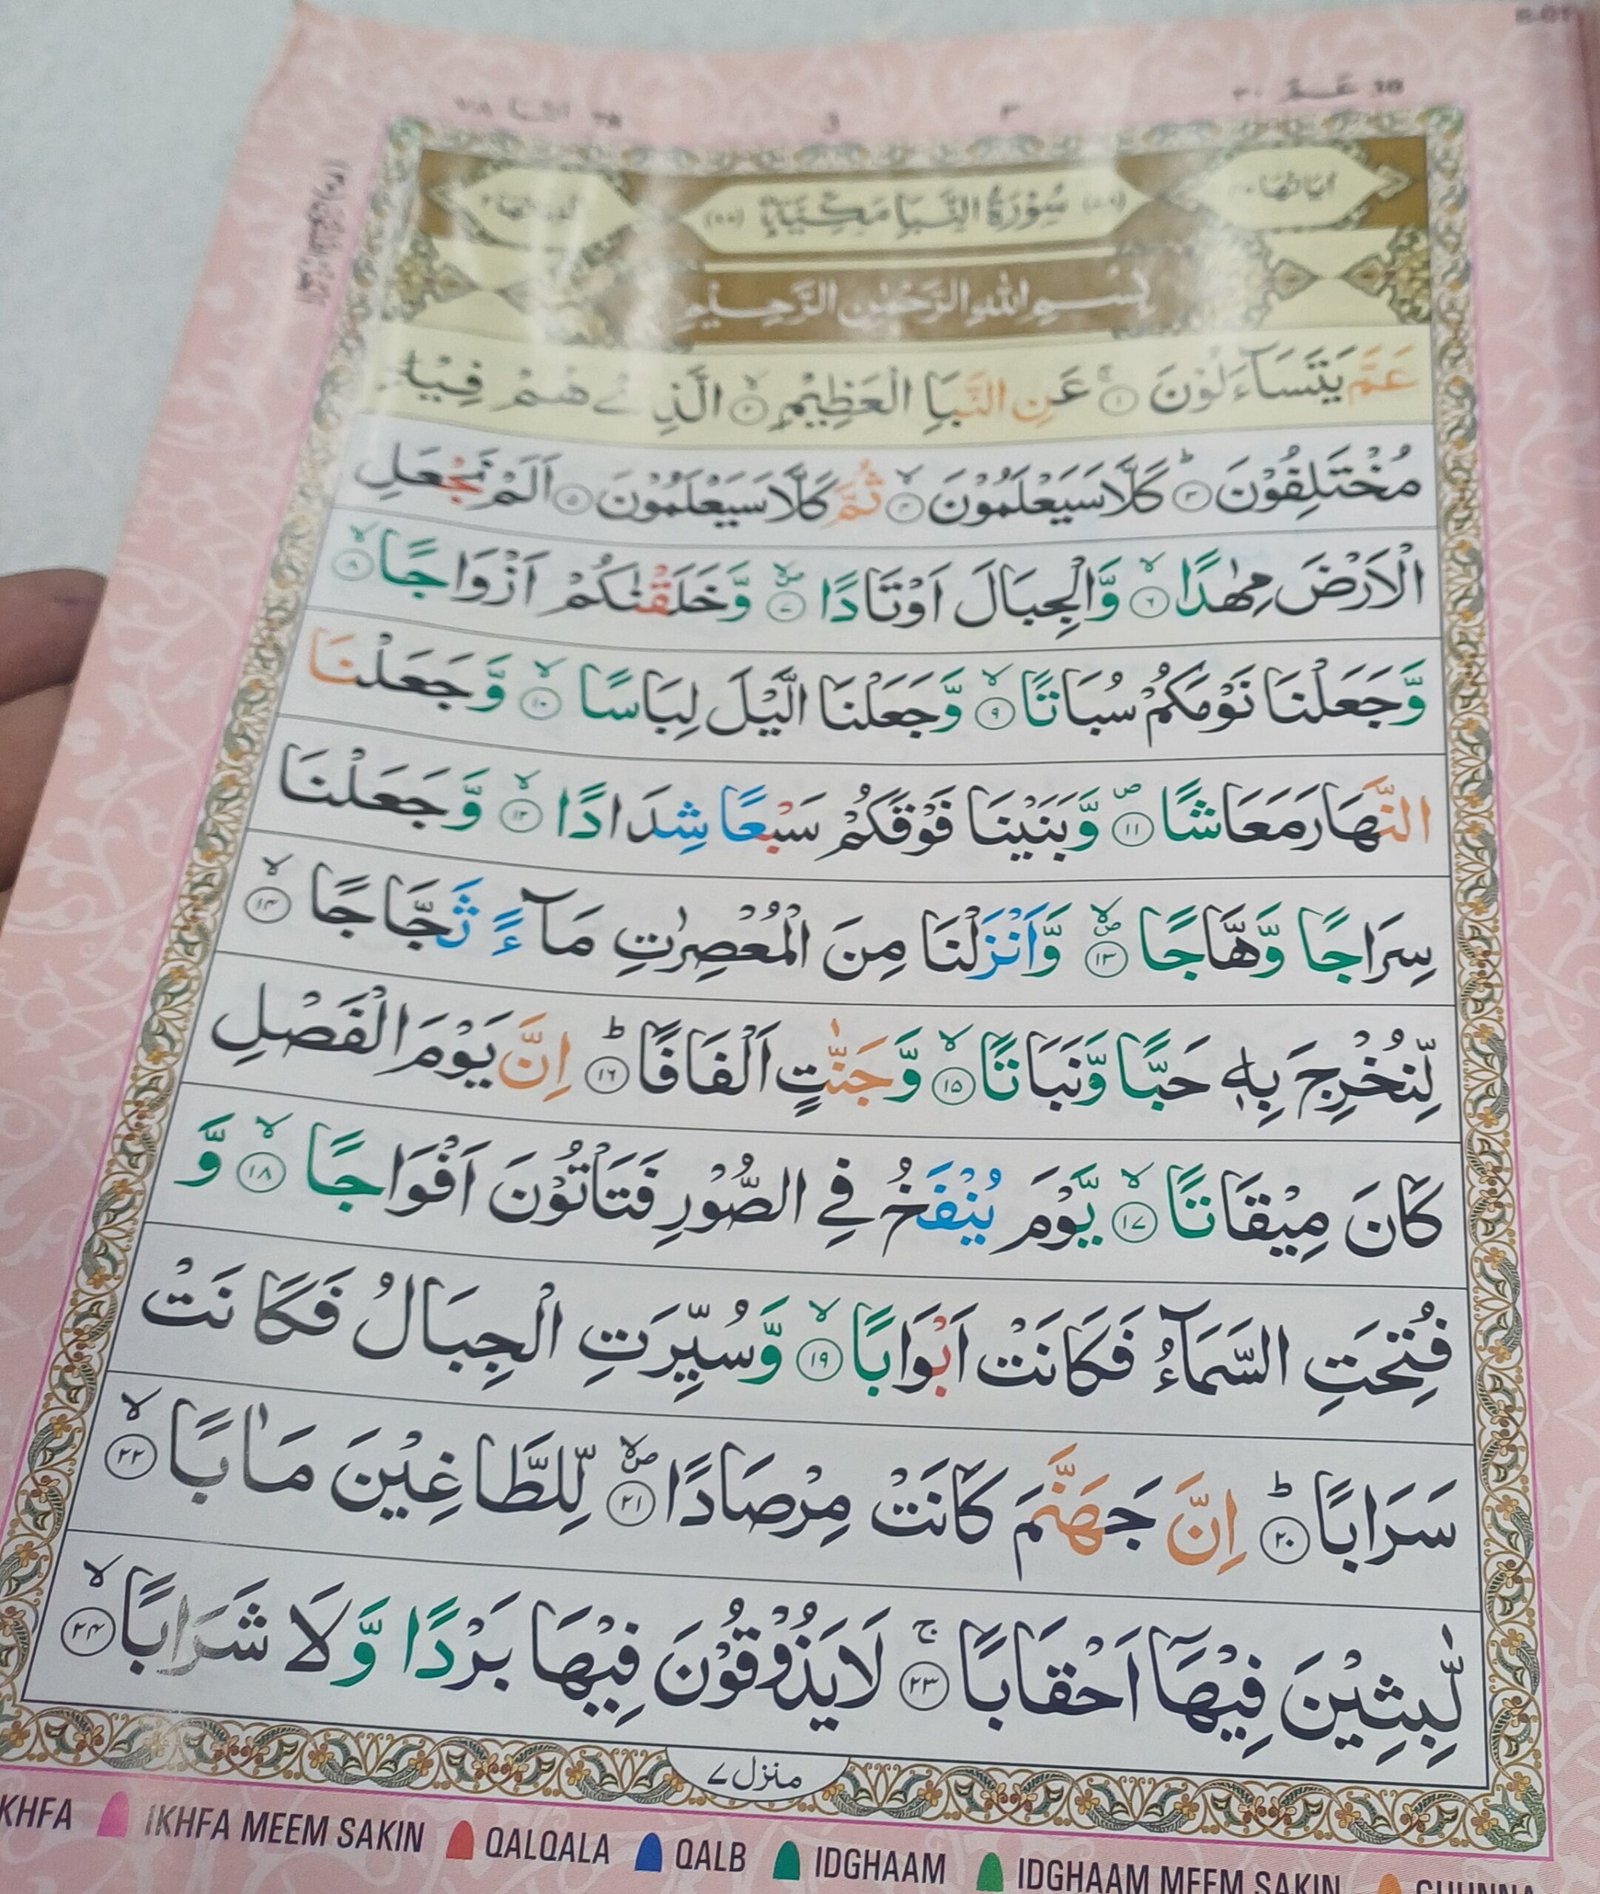 ٣٠ عَمَّ 30
٣
3
78 النبا ٧٨
سُوْرَةُ النَّبَاِ مَكِّيَّةٌ
بِسْمِ اللهِ الرَّحْمٰنِ الرَّحِيْمِ
عَمَّ يَتَسَآءَلُوْنَ ۚ﴿١﴾ عَنِ النَّبَاِ الْعَظِيْمِ ۙ﴿٢﴾ الَّذِىْ هُمْ فِيْهِ
مُخْتَلِفُوْنَ ؕ﴿٣﴾ كَلَّا سَيَعْلَمُوْنَ ۙ﴿٤﴾ ثُمَّ كَلَّا سَيَعْلَمُوْنَ ﴿٥﴾ اَلَمْ نَجْعَلِ
الْاَرْضَ مِهٰدًا ۙ﴿٦﴾ وَّالْجِبَالَ اَوْتَادًا ۪ۙ﴿٧﴾ وَّخَلَقْنٰكُمْ اَزْوَاجًا ۙ﴿٨﴾
وَّجَعَلْنَا نَوْمَكُمْ سُبَاتًا ۙ﴿٩﴾ وَّجَعَلْنَا الَّيْلَ لِبَاسًا ۙ﴿١٠﴾ وَّجَعَلْنَا
النَّهَارَ مَعَاشًا ۪﴿١١﴾ وَّبَنَيْنَا فَوْقَكُمْ سَبْعًا شِدَادًا ۙ﴿١٢﴾ وَّجَعَلْنَا
سِرَاجًا وَّهَّاجًا ۪ۙ﴿١٣﴾ وَّاَنْزَلْنَا مِنَ الْمُعْصِرٰتِ مَآءً ثَجَّاجًا ۙ﴿١٤﴾
لِّنُخْرِجَ بِهٖ حَبًّا وَّنَبَاتًا ۙ﴿١٥﴾ وَّجَنّٰتٍ اَلْفَافًا ؕ﴿١٦﴾ اِنَّ يَوْمَ الْفَصْلِ
كَانَ مِيْقَاتًا ۙ﴿١٧﴾ يَّوْمَ يُنْفَخُ فِى الصُّوْرِ فَتَاْتُوْنَ اَفْوَاجًا ۙ﴿١٨﴾ وَّ
فُتِحَتِ السَّمَآءُ فَكَانَتْ اَبْوَابًا ۙ﴿١٩﴾ وَّسُيِّرَتِ الْجِبَالُ فَكَانَتْ
سَرَابًا ؕ﴿٢٠﴾ اِنَّ جَهَنَّمَ كَانَتْ مِرْصَادًا ۪ۙ﴿٢١﴾ لِّلطَّاغِيْنَ مَاٰبًا ۙ﴿٢٢﴾
لّٰبِثِيْنَ فِيْهَآ اَحْقَابًا ۚ﴿٢٣﴾ لَا يَذُوْقُوْنَ فِيْهَا بَرْدًا وَّلَا شَرَابًا ۙ﴿٢٤﴾
منزل ٧
KHFA IKHFA MEEM SAKIN QALQALA QALB IDGHAAM IDGHAAM MEEM SAKIN GHUNNA